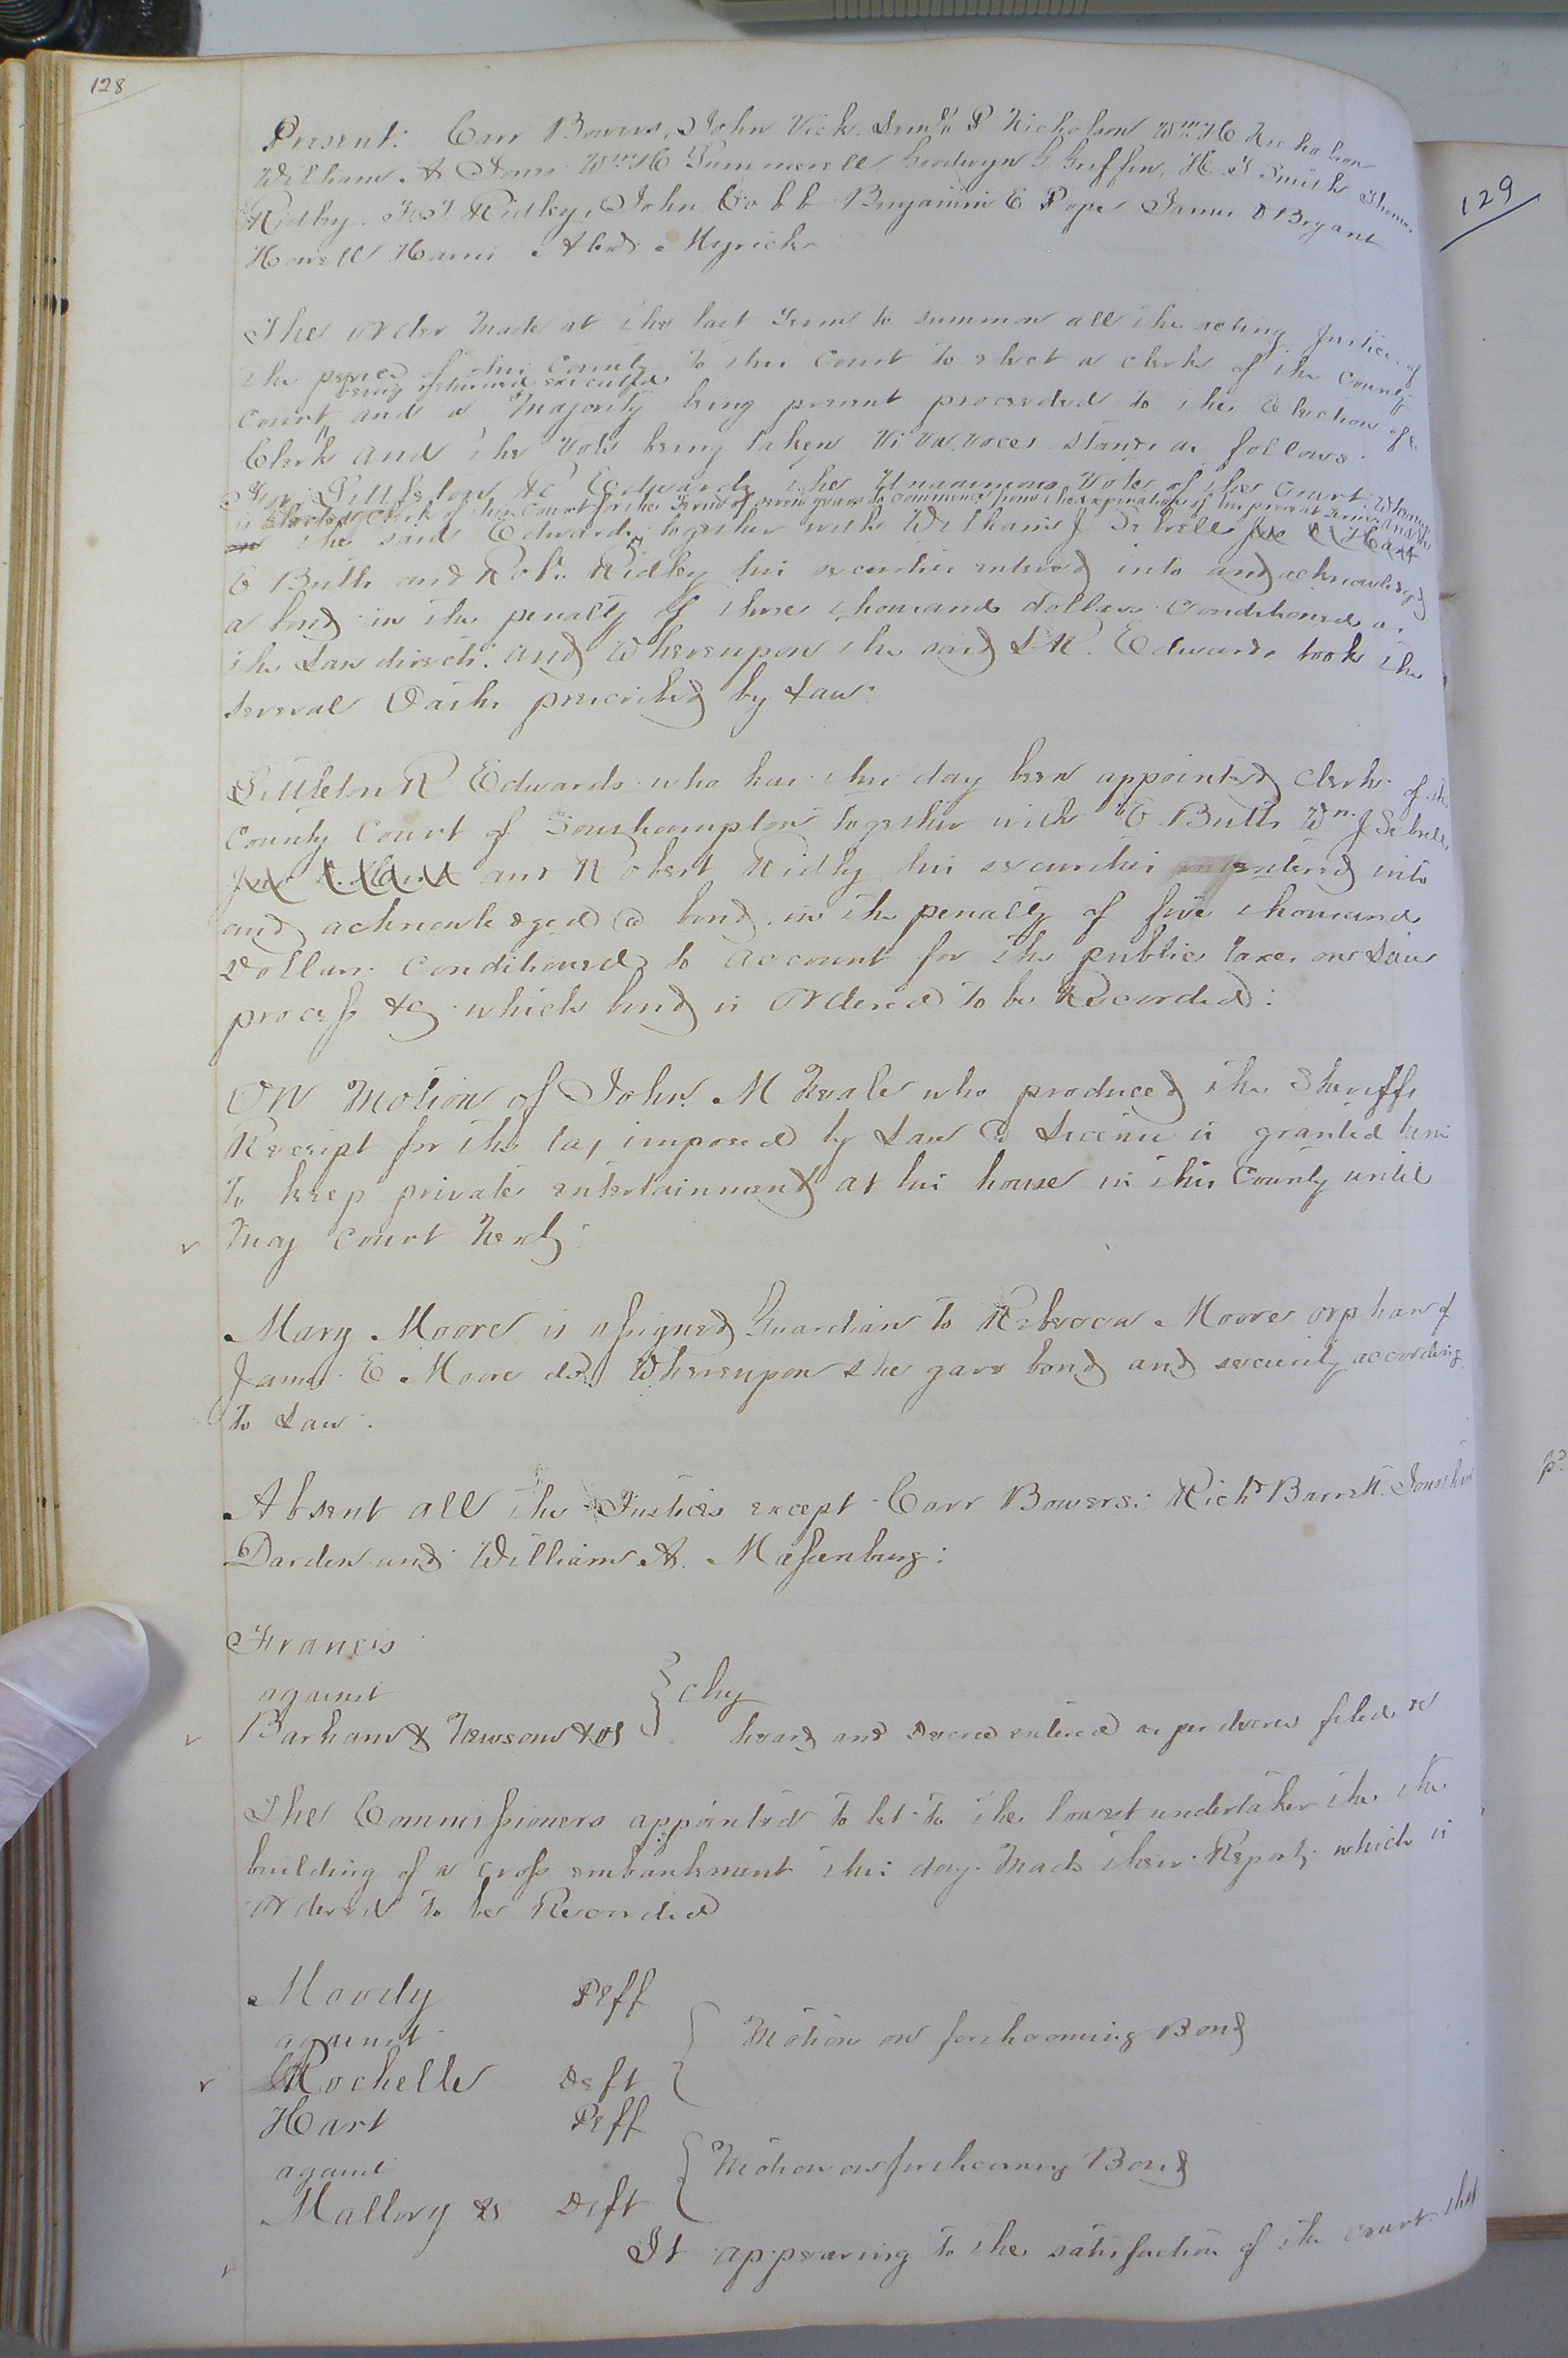 128
129
Present: Carr Bowers, John Vick, P Nicholson Wm H Nicholson
William A Jones Wm H Summerell Goodwyn G Griffin, H. J Smith Thomas
Ridley. John Cobb Benjamin E Pope James D Bryant
Howell Harris Myrick
The order made at the last Term to summon all the acting Justices of
the peace of this County to this Court to elect a clerk of the County
being returned executed
Court ^ and a majority being present proceeded to the Election of a
Clerk and the vote being taken viva voce stands as follows:
For Littleton R Edwards the Unanimous Vote of the Court: Whereupon
is Clerk of this Court for the Term of seven years to commence from the expiration of his present Term and the
the said Edwards together with William J Sebrell Jas H Hart
E Butts and Rob. Ridley his securities entered into and acknowledged
a bond in the penalty of three thousand dollars Conditioned as
the Law directs. and Whereupon the said L R. Edwards took the
several Oaths prescribed by Law:
Littleton R Edwards who has this day been appointed Clerk of the
County Court of Southampton together with E. Butts Wm. J Sebrell
and Robert Ridley his securities entered into
and acknowledged a bond in the penalty of five thousand
Dollars Conditioned to account for the public taxes on Law
process &c which bond is Ordered to be Recorded:
On Motion of John M Neale who produced the Sheriffs
Receipt for the tax imposed by Law a License is granted him
to keep private entertainment at his house in this County until
May Court Next:
Mary Moore is assigned Guardian to Rebecca Moore orphan of
James E Moore decd Whereupon she gave bond and security according
to Law:
Absent all the Justices except Carr Bowers: Richd Barrett. Jonathan
Darden and William A. Massenburg:
Francis
against
} chy
Barham & Newsom & os heard and Decree entered as per decree filed
The Commissioners appointed to let to the lowest undertaker the the
building of a cross embankment this day Made their Report which is
ordered to be Recorded
Moody Plff
against } Motion on forthcoming Bond
Rochelle Deft
Hart Plff
against { Motion on forthcoming Bond
Mallory Deft
It appearing to the satisfaction of the court that